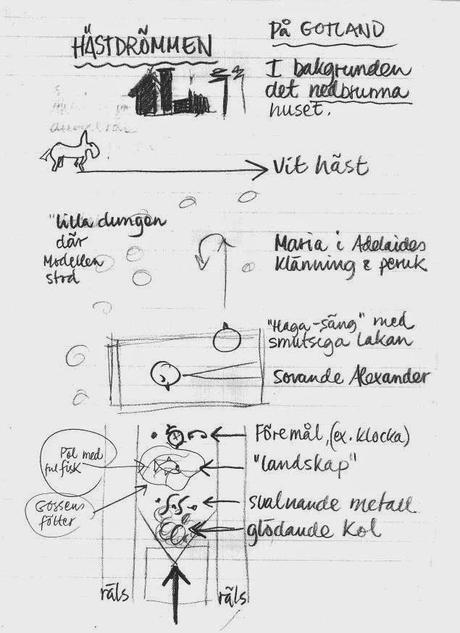 HÄSTDRÖMMEN
På GOTLAND
I bakgrunden
det nedbrunna
huset.
Vit häst
"lilla dungen
där
Modellen
stod
Maria i Adelaides
klänning & peruk
"Haga-säng" med
smutsiga lakan
Sovande Alexander
Föremål, (ex. klocka)
Pöl med
ful fisk
"landskap"
Gossens
fötter
svalnande metall
glödande kol
räls
räls